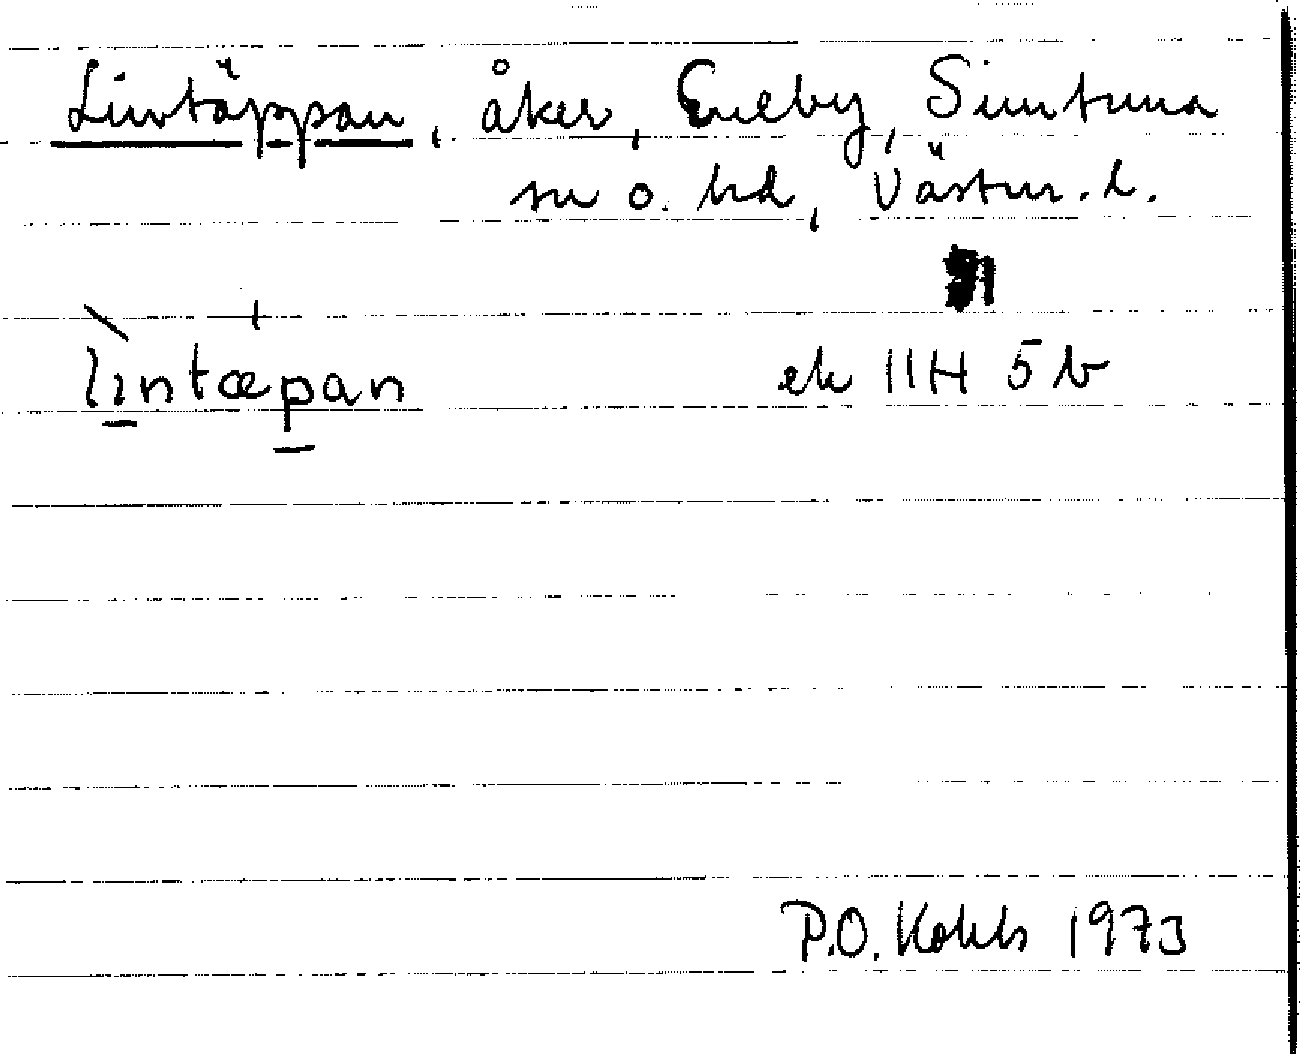 Lintäppan, åker, Eneby, Simtuna
sn o. hd, Västm. l.
lìntæpan ek 11H 5b
P.O. Kohls 1973